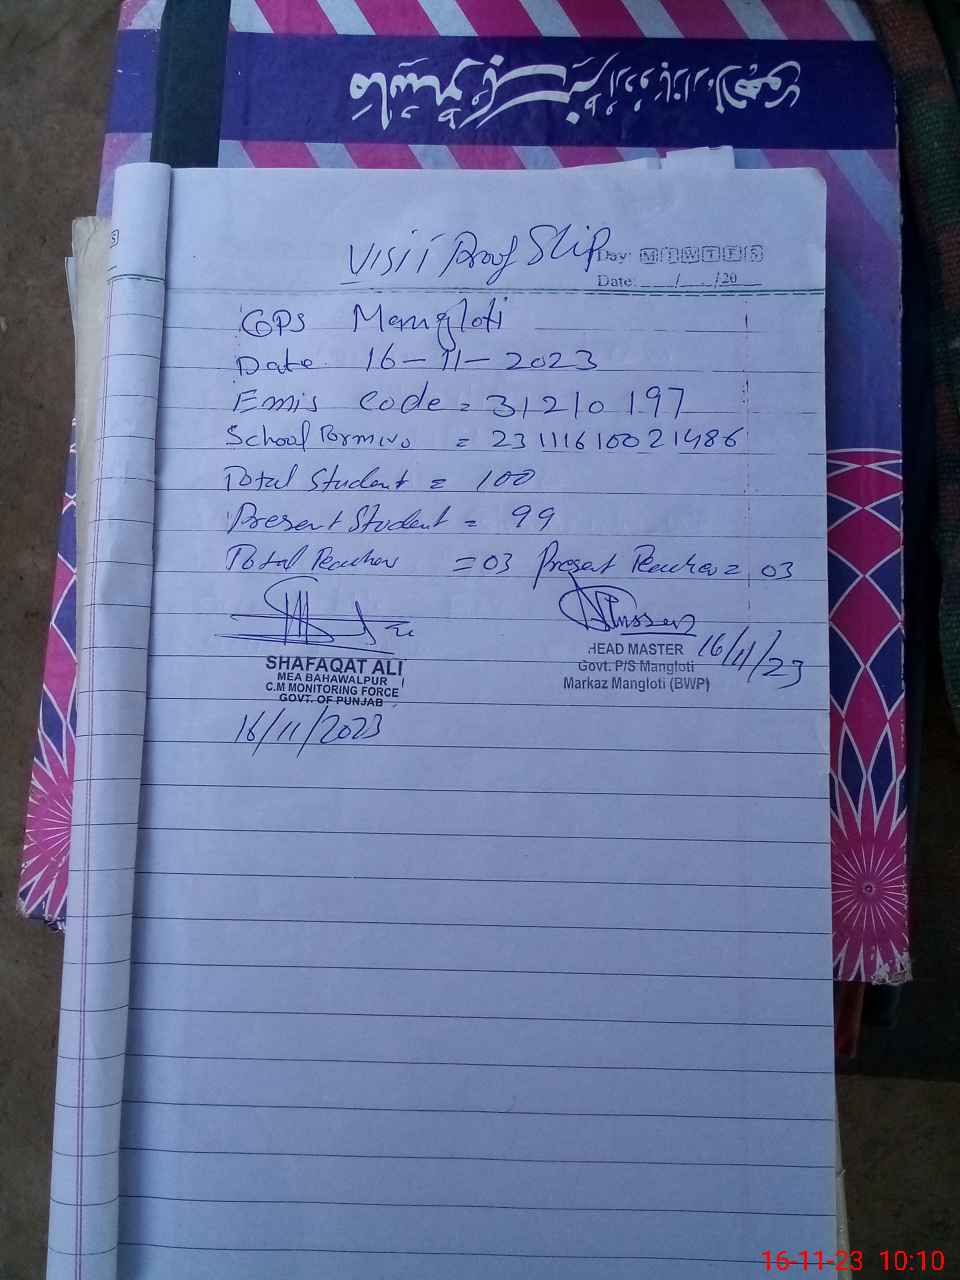 Visit Proof Slip
Day: M T W T F S
Date: ___/___/20___
GPS Mangloti
Date 16-11-2023
Emis code = 31210197
School Form No = 23111610021486
Total Student = 100
Present Student = 99
Total Teacher = 03 Present Teacher = 03
SHAFAQAT ALI
MEA BAHAWALPUR
C.M MONITORING FORCE
GOVT. OF PUNJAB
16/11/2023
HEAD MASTER
Govt. P/S Mangloti
Markaz Mangloti (BWP)
16/11/23
16-11-23 10:10